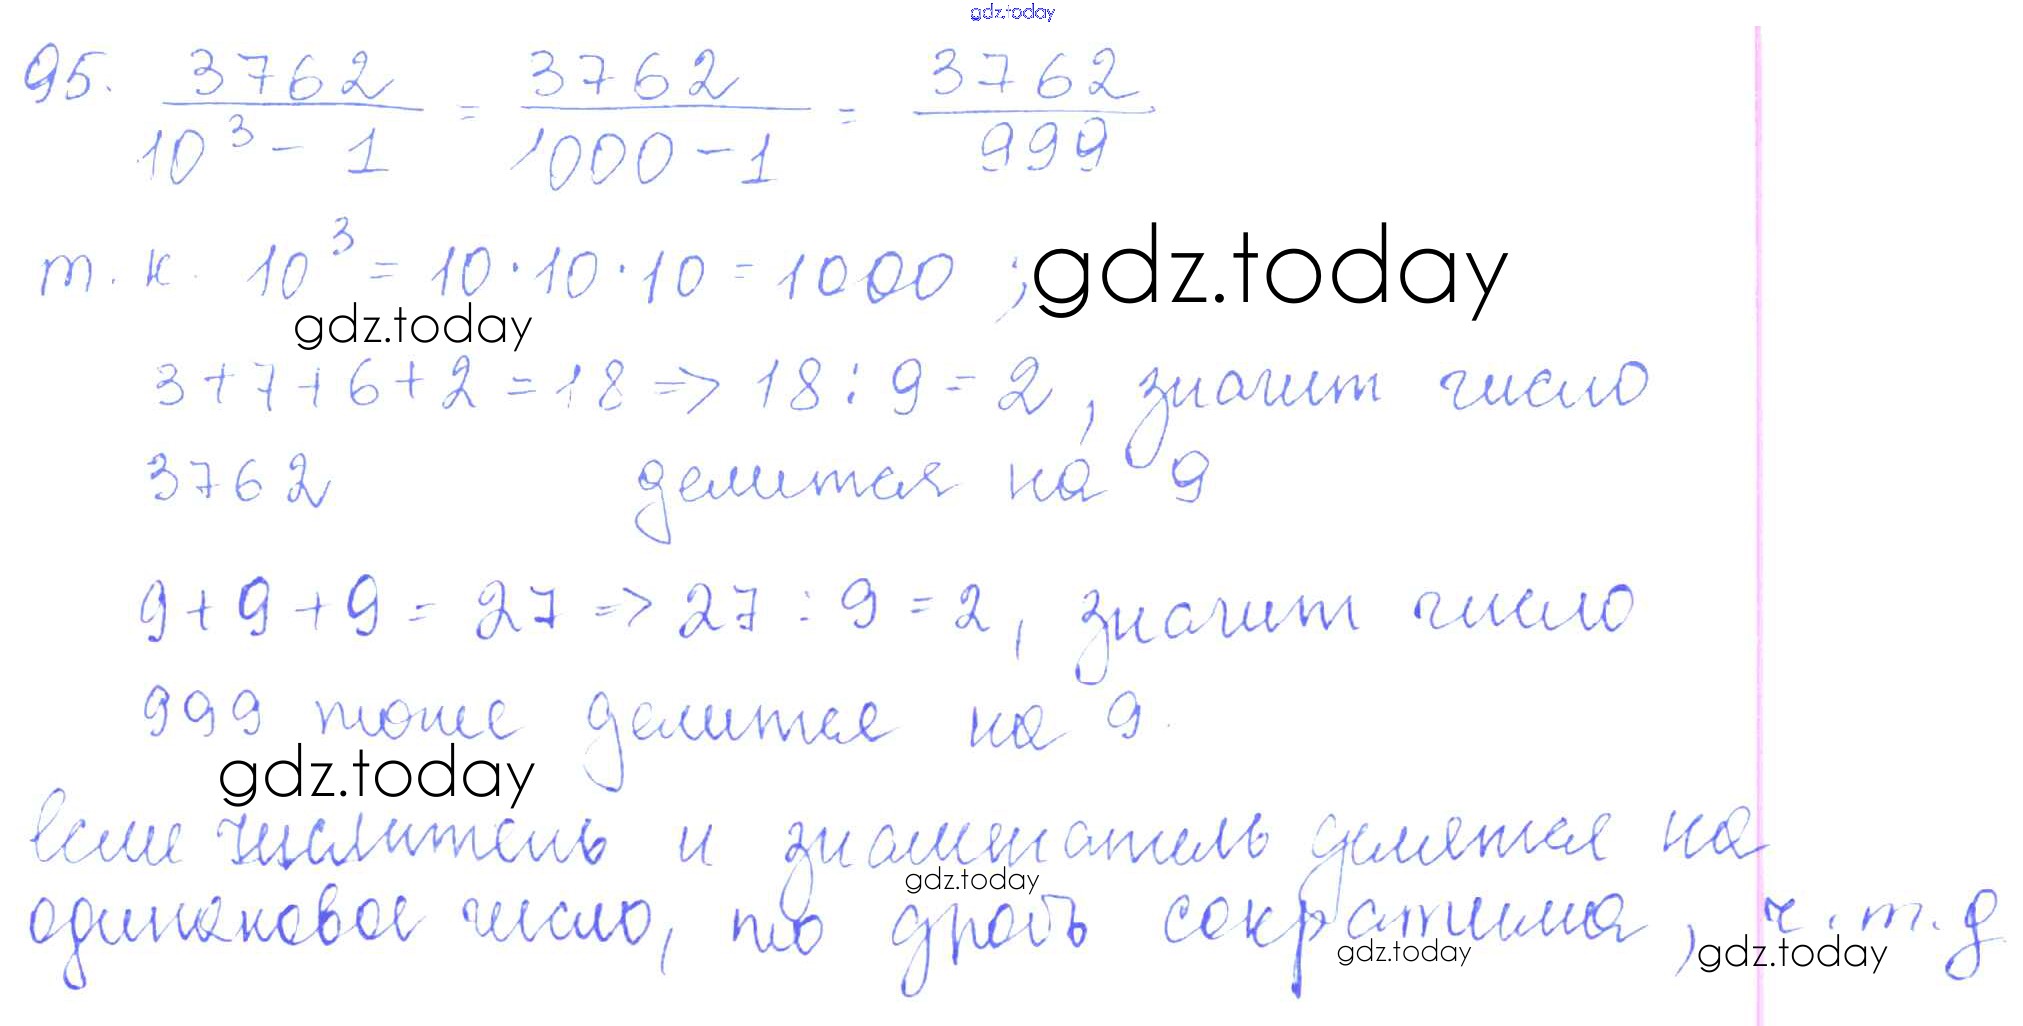 gdz.today
95. 3762/(10³ - 1) = 3762/(1000 - 1) = 3762/999
т. к. 10³ = 10 · 10 · 10 = 1000 ; gdz.today
gdz.today
3+7+6+2 = 18 => 18 : 9 = 2, значит число
3762 делится на 9
9+9+9 = 27 => 27 : 9 = 2, значит число
999 тоже делится на 9.
gdz.today
Если числитель и знаменатель делятся на
gdz.today
одинаковое число, то дробь сократима, ч. т. д
gdz.today gdz.today